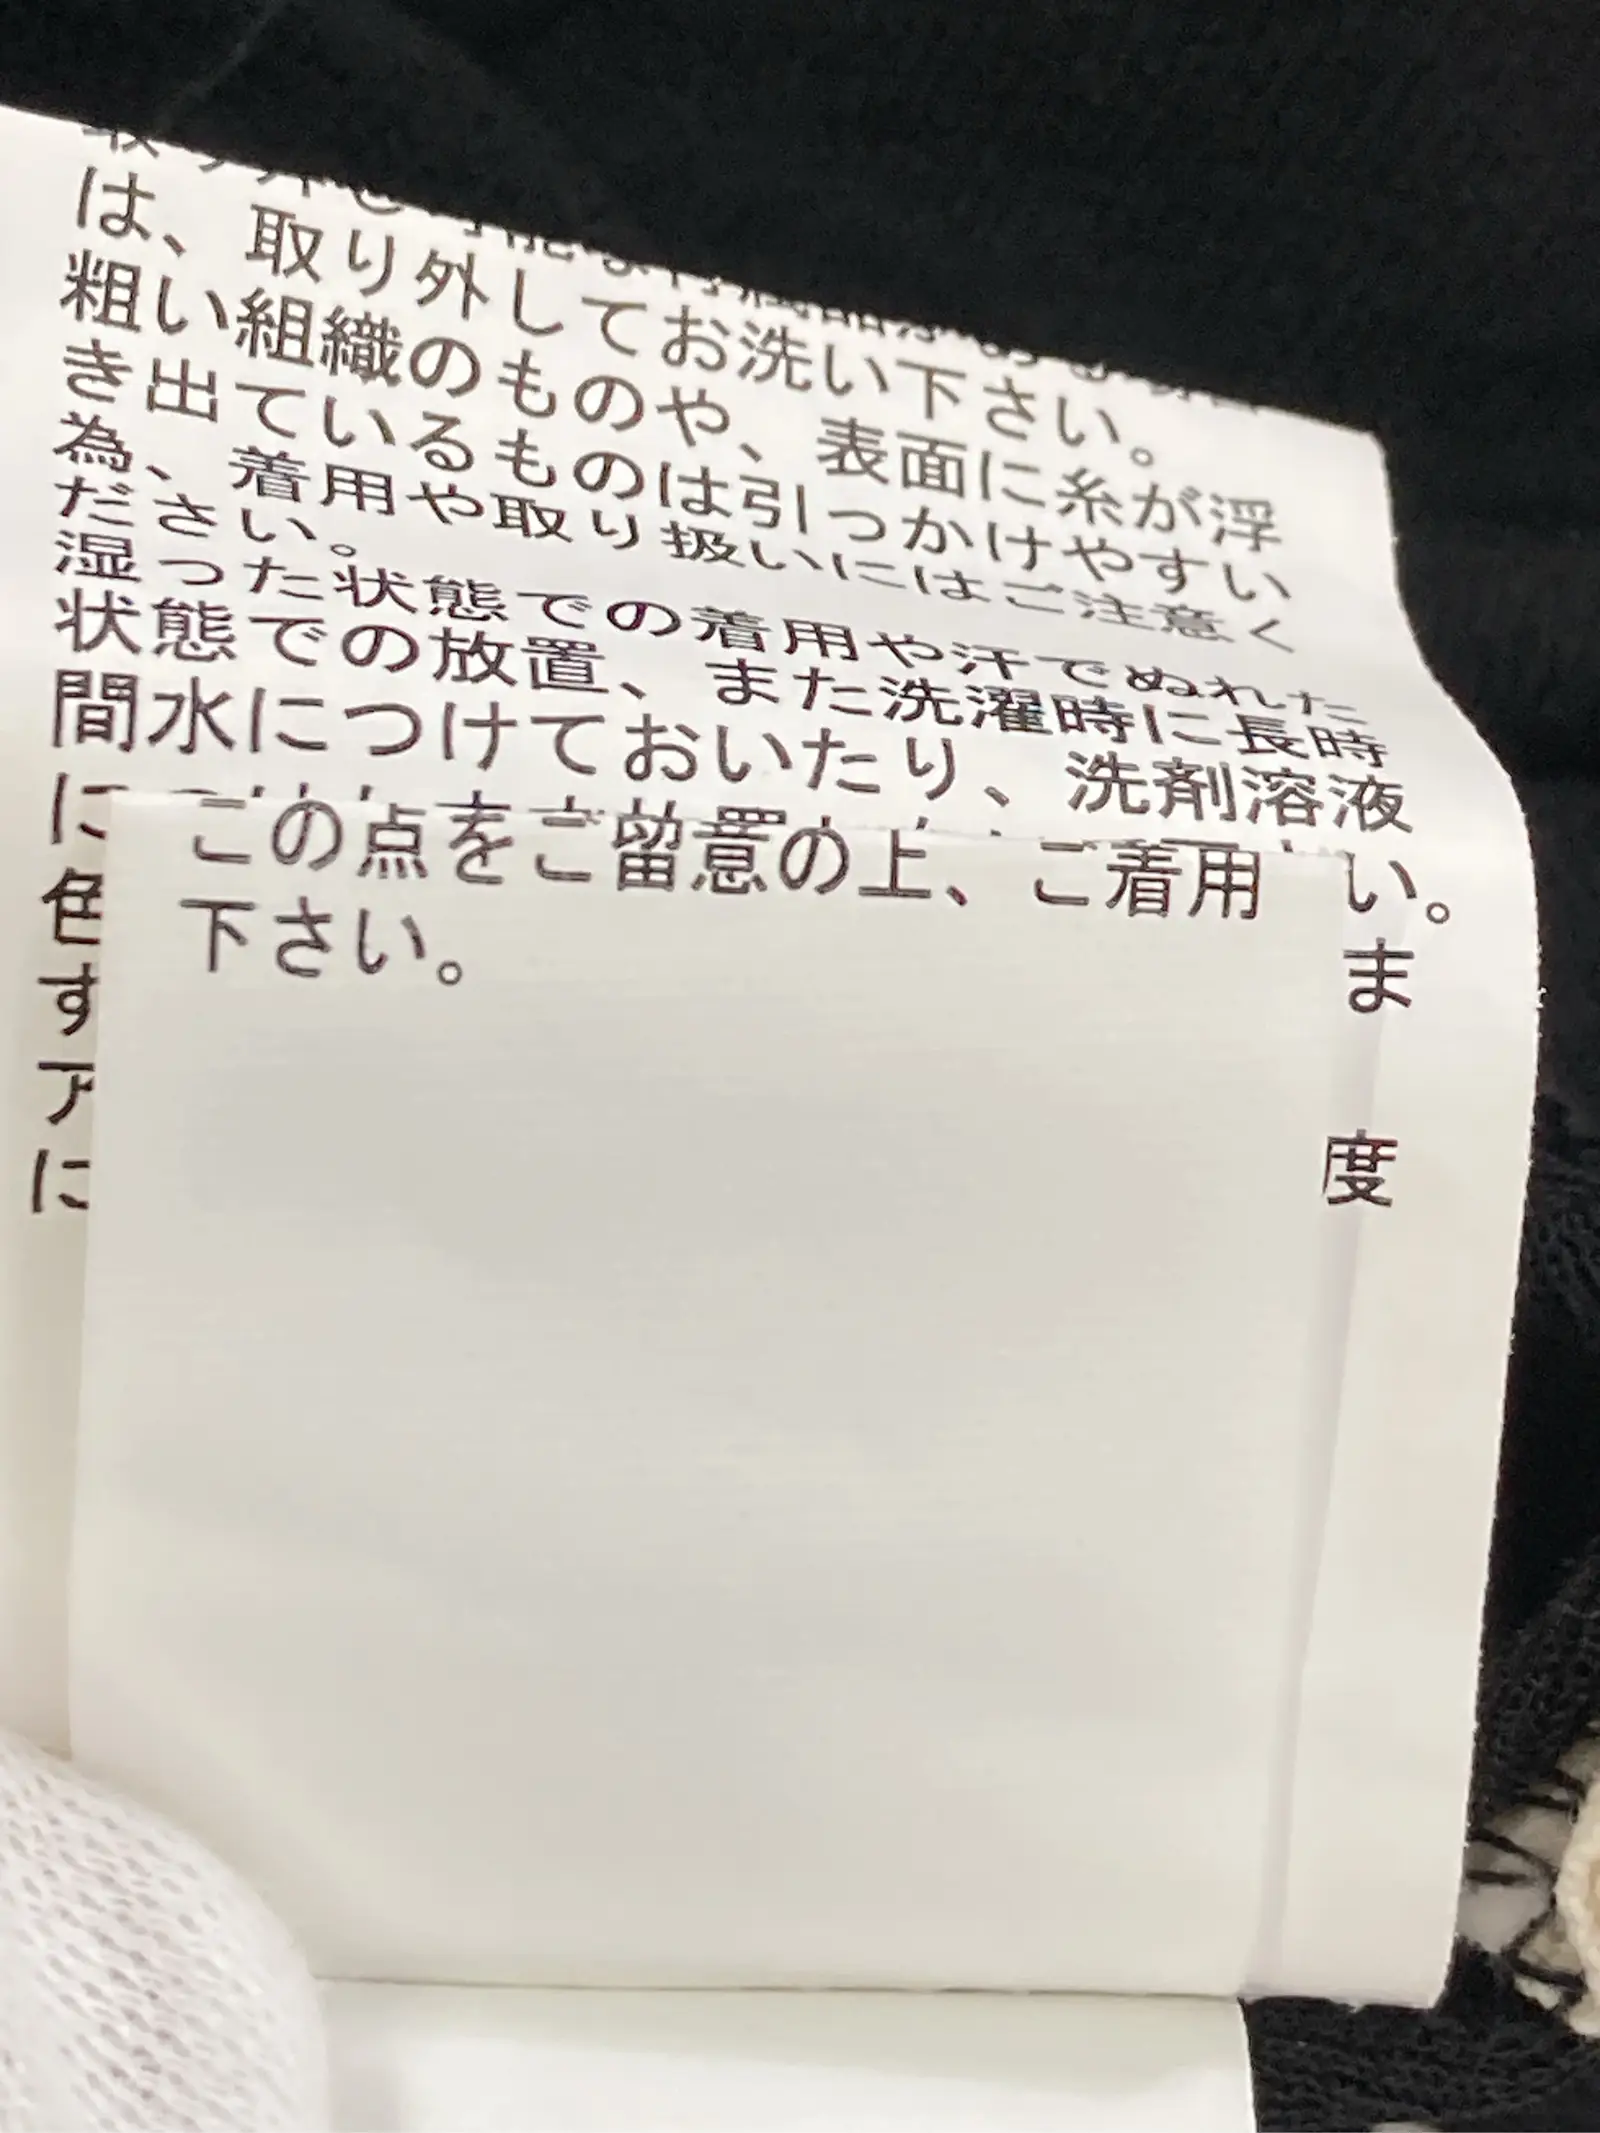 は、取り外してお洗い下さい。
粗い組織のものや、表面に糸が浮
き出ているものは引っかけやすい
為、着用や取り扱いにはご注意く
ださい。
湿った状態での着用や汗でぬれた
状態での放置、また洗濯時に長時
間水につけておいたり、洗剤溶液
に
い。
この点をご留意の上、ご着用
下さい。
色
ま
す
ア
度
に